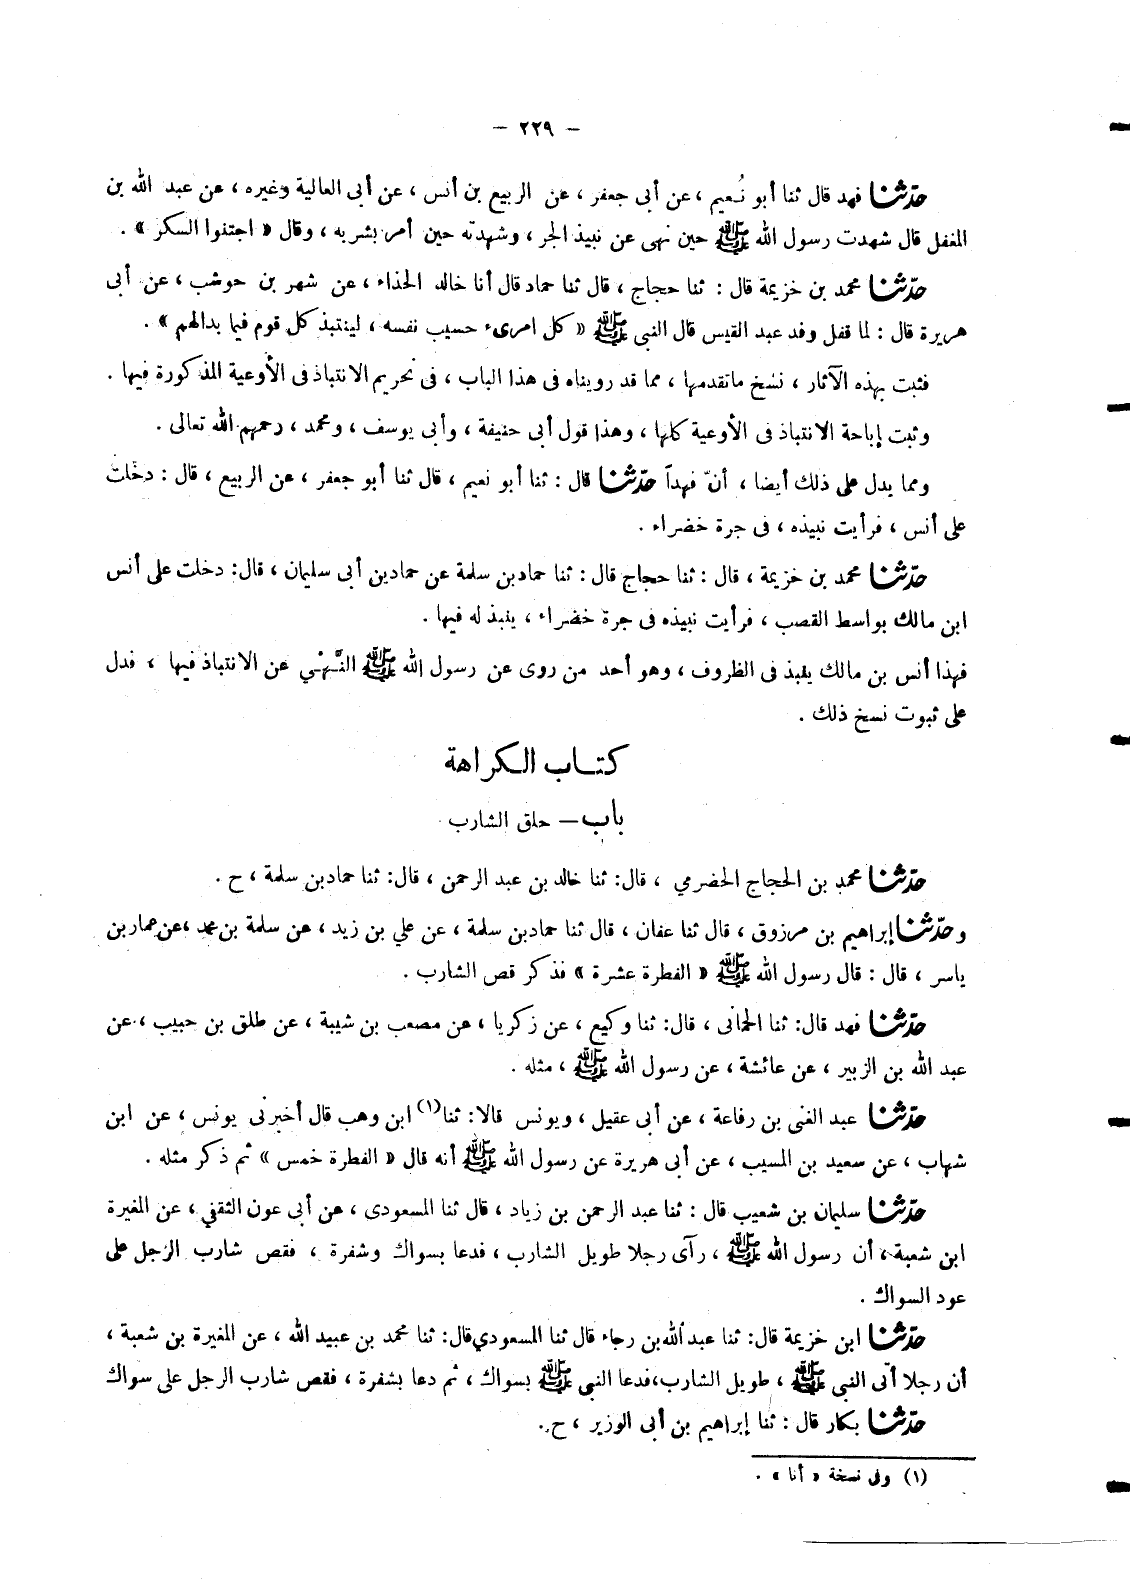 — ٢٢٩ —
حدّثنا فهد قال ثنا أبو نُعيم ، عن أبي جعفر ، عن الربيع بن أنس ، عن أبى العالية وغيره ، عن عبد الله بن
المغفل قال شهدت رسول الله ﷺ حين نهى عن نبيذ الجر ، وشهدته حين أمر بشربه ، وقال « اجتنبوا السكر » .
حدّثنا محمد بن خزيمة قال : ثنا حجاج ، قال ثنا حماد قال أنا خالد الحذاء ، عن شهر بن حوشب ، عن أبى
هريرة قال : لما قفل وفد عبد القيس قال النبى ﷺ « كل امرىء حسيب نفسه ، لينتبذ كل قوم فيما بدالهم » .
فثبت بهذه الآثار ، نسْخ ماتقدمها ، مما قد رويناه فى هذا الباب ، فى تحريم الانتباذ فى الأوعية المذكورة فيها .
وثبت إباحة الانتباذ فى الأوعية كلها ، وهذا قول أبى حنيفة ، وأبى يوسف ، ومحمد ، رحمهم الله تعالى .
ومما يدل على ذلك أيضا ، أنّ فهداً حدّثنا قال : ثنا أبو نعيم ، قال ثنا أبو جعفر ، عن الربيع ، قال : دخلت
على أنس ، فرأيت نبيذه ، فى جرة خضراء .
حدّثنا محمد بن خزيمة ، قال : ثنا حجاج قال : ثنا حمادبن سلمة عن حمادبن أبى سليمان ، قال: دخلت على أنس
ابن مالك بواسط القصب ، فرأيت نبيذه فى جرة خضراء ، ينبذ له فيها .
فهذا أنس بن مالك ينبذ فى الظروف ، وهو أحد من روى عن رسول الله ﷺ النَّهْيَ عن الانتباذ فيها ، فدل
على ثبوت نسخ ذلك .
كتـاب الـكراهة
باب — حلق الشارب
حدّثنا محمد بن الحجاج الحضرمي ، قال: ثنا خالد بن عبد الرحمن ، قال: ثنا حمادبن سلمة ، ح .
وحدّثنا إبراهيم بن مرزوق ، قال ثنا عفان ، قال ثنا حمادبن سلمة ، عن علي بن زيد ، عن سلمة بن محمد ،عن عمار بن
ياسر ، قال : قال رسول الله ﷺ « الفطرة عشرة » فذكر قص الشارب .
حدّثنا فهد قال: ثنا الحمانى ، قال: ثنا وكيع ، عن زكريا ، عن مصعب بن شيبة ، عن طلق بن حبيب ، عن
عبد الله بن الزبير ، عن عائشة ، عن رسول الله ﷺ ، مثله .
حدّثنا عبد الغنى بن رفاعة ، عن أبى عقيل ، ويونس قالا: ثنا(١) ابن وهب قال أخبرنى يونس ، عن ابن
شهاب ، عن سعيد بن المسيب ، عن أبى هريرة عن رسول الله ﷺ أنه قال « الفطرة خمس » ثم ذكر مثله .
حدّثنا سليمان بن شعيب قال : ثنا عبد الرحمن بن زياد ، قال ثنا المسعودى ، عن أبى عون الثقفي ، عن المغيرة
ابن شعبة ، أن رسول الله ﷺ ، رآى رجلا طويل الشارب ، فدعا بسواك وشفرة ، فقص شارب الرجل على
عود السواك .
حدّثنا ابن خزيمة قال: ثنا عبدالله بن رجاء قال ثنا المسعودي قال: ثنا محمد بن عبيد الله ، عن المغيرة بن شعبة ،
أن رجلا أتى النبى ﷺ ، طويل الشارب،فدعا النبى ﷺ بسواك ، ثم دعا بشفرة ، فقص شارب الرجل على سواك
حدّثنا بكار قال : ثنا إبراهيم بن أبى الوزير ، ح .
(١) وفى نسخة « أنا » .